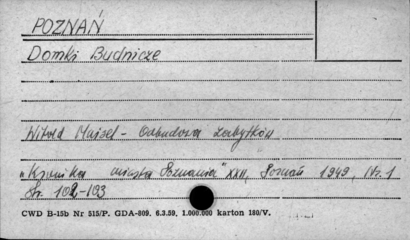 POZNAŃ
Domki Budnicze
Witold Maisel - Odbudowa zabytków
"Kronika miasta Poznania" XXII, Poznań 1949, Nr. 1
Str. 102-103
CWD B-15b Nr 515/P. GDA-809. 6.3.59, 1.000.000 karton 180/V.